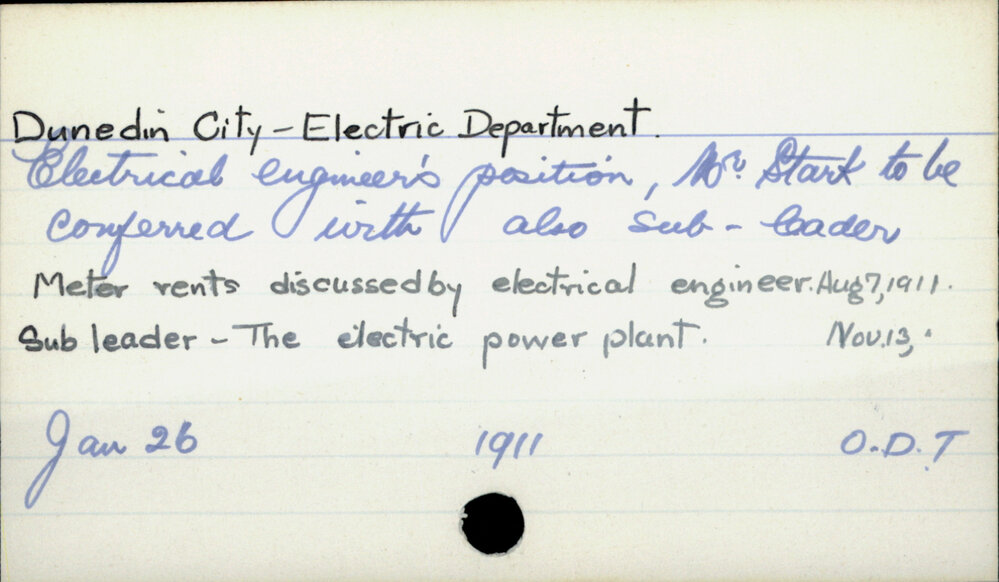 Dunedin City - Electric Department.
Electrical engineer's position, Mr. Stark to be
conferred with also sub - leader
Meter rents discussed by electrical engineer. Aug 7, 1911.
Sub leader - The electric power plant. Nov. 13, "
Jan 26 1911 O.D.T